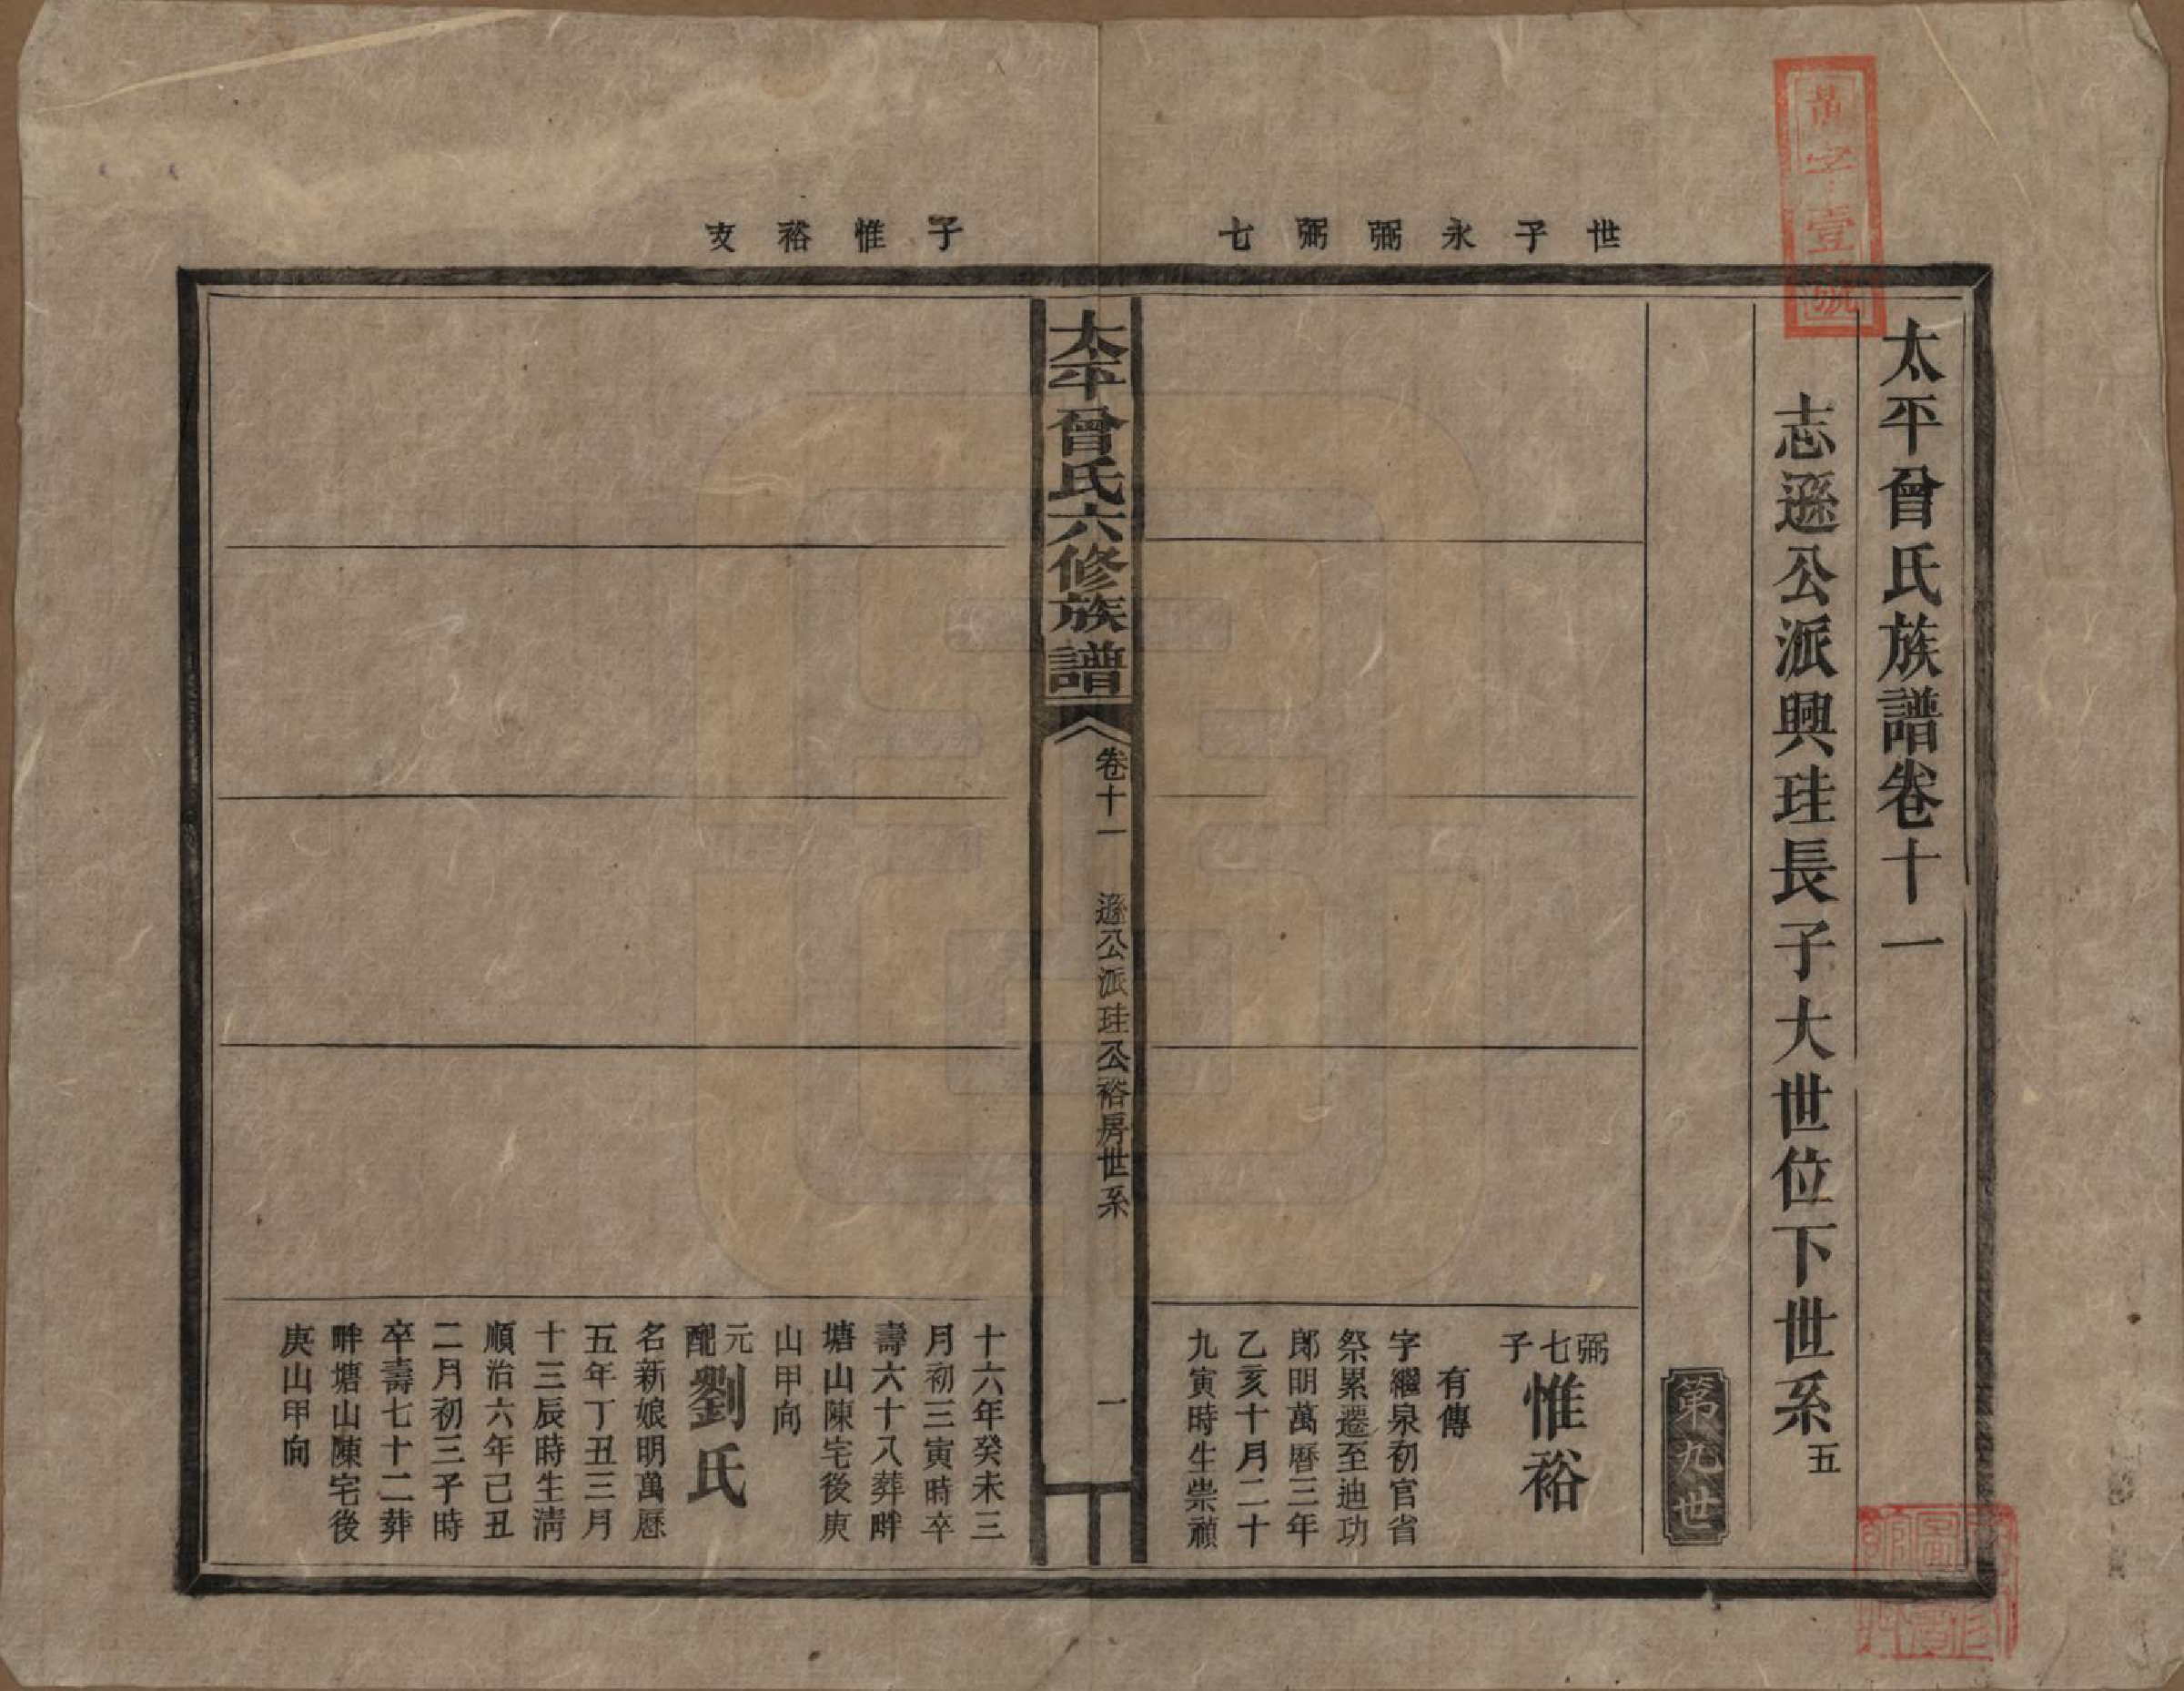 萬字壹號
太平曾氏族譜卷十一
志遜公派興珪長子大世位下世系五
第九世
世子永弼弼七
弼七子
惟裕
有傳
字繼泉初官省
祭累遷至迪功
郎明萬曆三年
乙亥十月二十
九寅時生崇禎
太平曾氏六修族譜
卷十一
遜公派珪公裕房世系
一
子惟裕支
十六年癸未三
月初三寅時卒
壽六十八葬畔
塘山陳宅後庚
山甲向
元配
劉氏
名新娘明萬歷
五年丁丑三月
十三辰時生淸
順治六年己丑
二月初三子時
卒壽七十二葬
畔塘山陳宅後
庚山甲向